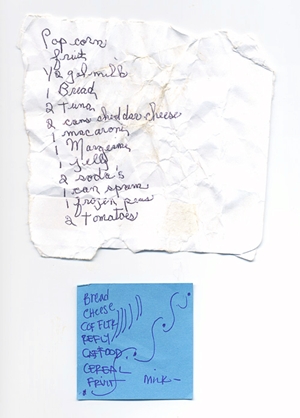 Pop corn
fruit
1/2 gal milk
1 Bread
2 Tuna
2 cans cheddar cheese
1 macaroni
1 Margerine
1 jelly
2 soda's
1 can spam
1 frozen peas
2 Tomatoes
Bread
Cheese
COFFEE
CATFOOD
CEREAL
FRUIT
Milk